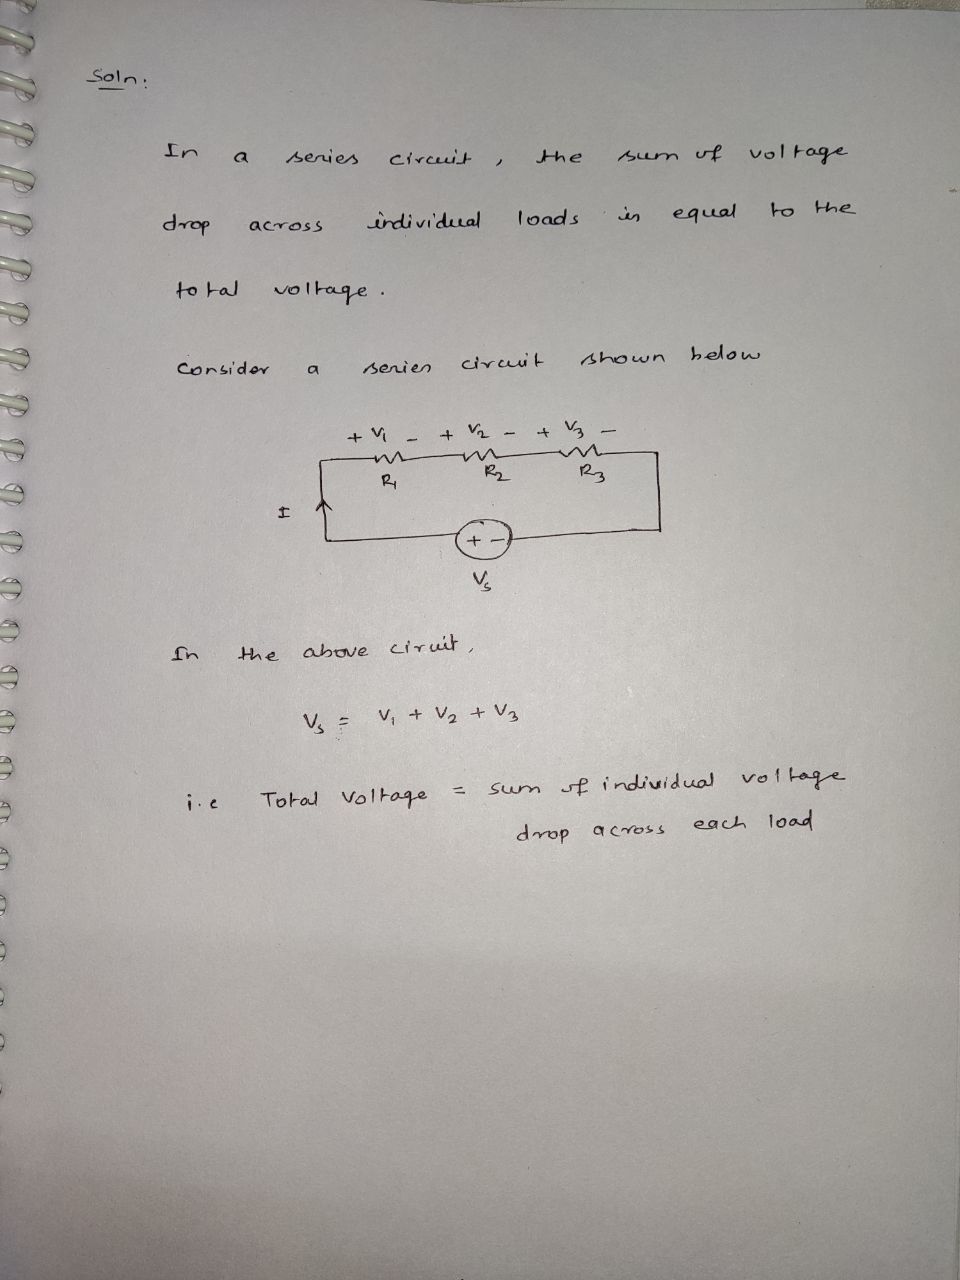 Soln:
In a series circuit, the sum of voltage
drop across individual loads is equal to the
total voltage.
Consider a series circuit shown below
+ V1 - + V2 - + V3 -
R1 R2 R3
I
+ -
Vs
In the above ciruit,
Vs = V1 + V2 + V3
i.e Total Voltage = sum of individual voltage
drop across each load